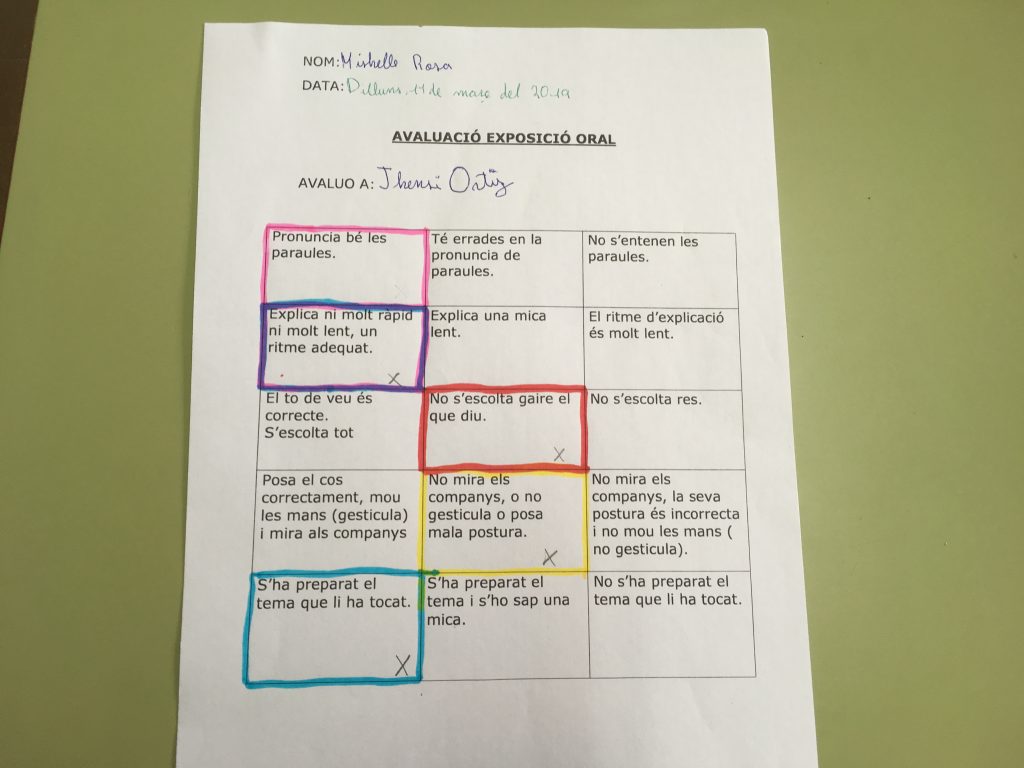 NOM: Mishelle Rosa
DATA: Dilluns, 11 de març del 2019
AVALUACIÓ EXPOSICIÓ ORAL
AVALUO A: Jhensi Ortiz
Pronuncia bé les
paraules.
Té errades en la
pronuncia de
paraules.
No s'entenen les
paraules.
Explica ni molt ràpid
ni molt lent, un
ritme adequat.
X
Explica una mica
lent.
El ritme d'explicació
és molt lent.
El to de veu és
correcte.
S'escolta tot
No s'escolta gaire el
que diu.
X
No s'escolta res.
Posa el cos
correctament, mou
les mans (gesticula)
i mira als companys
No mira els
companys, o no
gesticula o posa
mala postura.
X
No mira els
companys, la seva
postura és incorrecta
i no mou les mans (
no gesticula).
S'ha preparat el
tema que li ha tocat.
X
S'ha preparat el
tema i s'ho sap una
mica.
No s'ha preparat el
tema que li ha tocat.